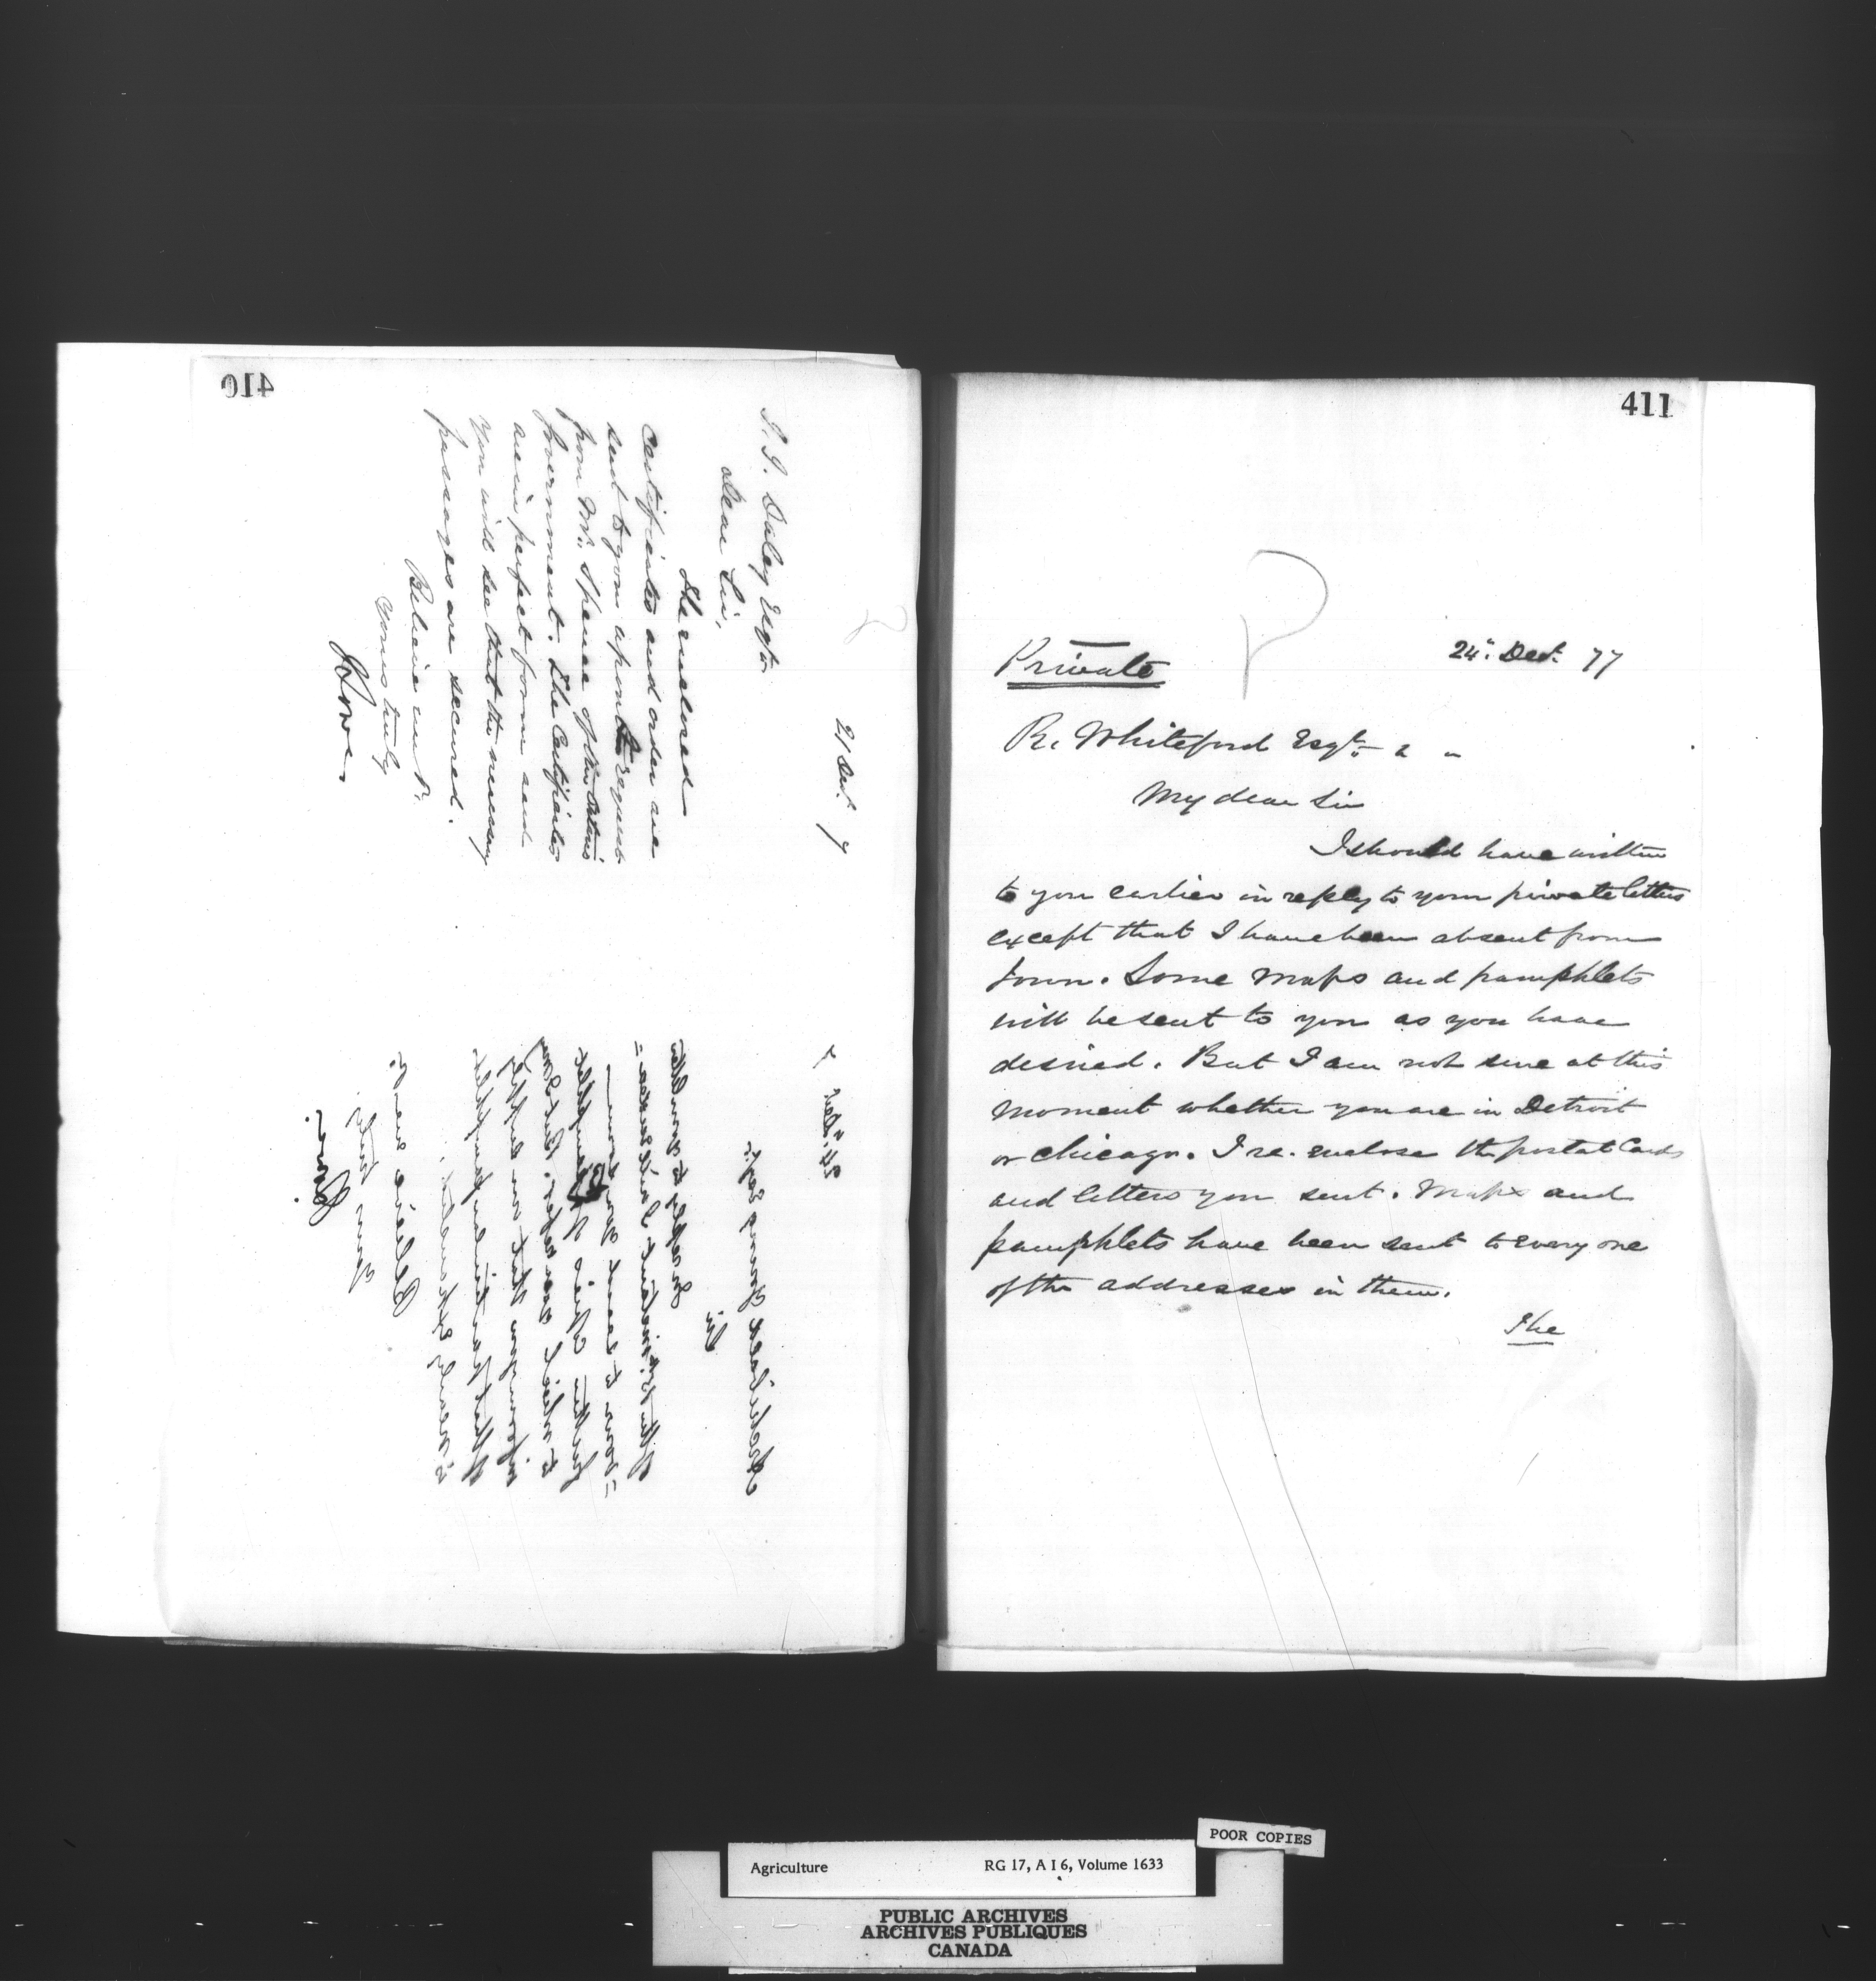 410
21 Dec. 7
J. J. Daley Esqre
Dear Sir,
The enclosed
certificates and order are
sent to you upon the request
from Mr. Spence of the Ontario
Government. The Certificates
are in perfect form and
you will see that the necessary
passages are secured.
Believe me to be
yours truly
J Lowe
24" Dec. 7
Archibald Young Esqr.
Sir
In reply to your letter
of the 18. instant I will
send to your
further
to which I was
inform you that our supply
of that particular pamphlet
is nearly exhausted.
Believe me to be
Yours truly
411
Private
24". Dec. 77
R. Whiteford Esqr.
My dear Sir
I should have written
to you earlier in reply to your private letters
except that I have been absent from
town. Some maps and pamphlets
will be sent to you as you have
desired. But I am not sure at this
moment whether you are in Detroit
or Chicago. I re-enclose the postal Cards
and letters you sent. Maps and
pamphlets have been sent to every one
of the addresses in them.
The
POOR COPIES
Agriculture RG 17, A I 6, Volume 1633
PUBLIC ARCHIVES
ARCHIVES PUBLIQUES
CANADA